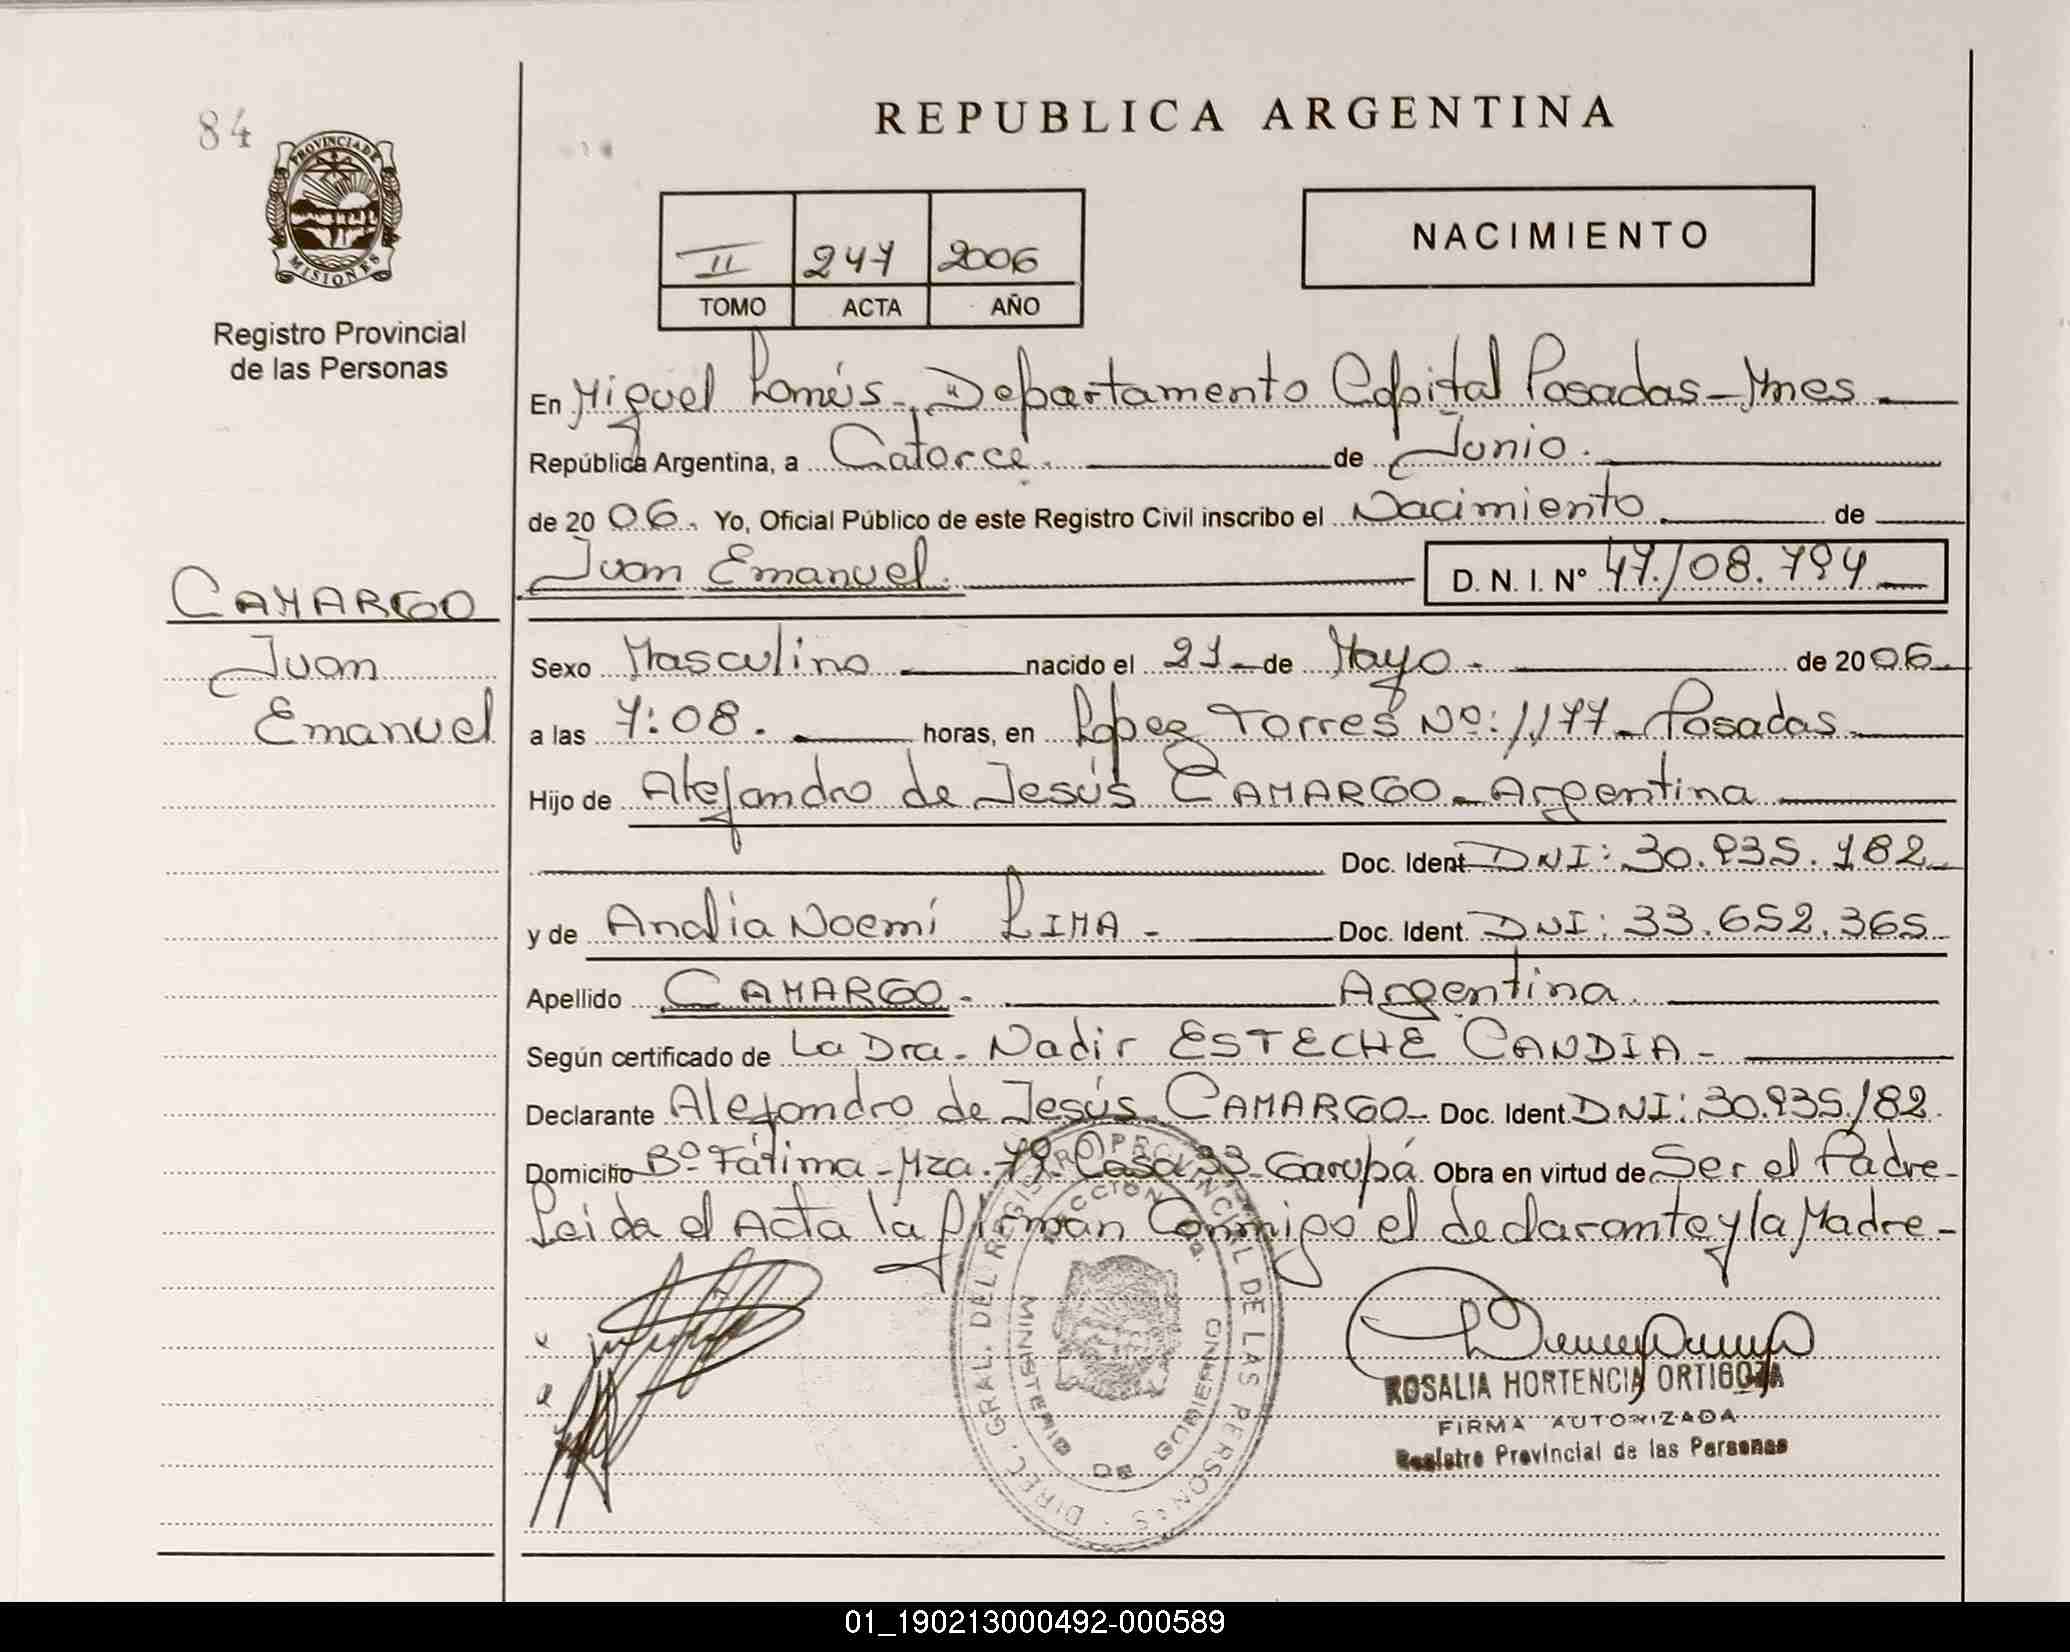 84
REPUBLICA ARGENTINA
PROVINCIA DE
MISIONES
Registro Provincial
de las Personas
II 247 2006
TOMO ACTA AÑO
NACIMIENTO
En Miguel Lanús - Departamento Capital Posadas - Mnes
República Argentina, a Catorce. de Junio.
de 20 06. Yo, Oficial Público de este Registro Civil inscribo el Nacimiento de
Juan Emanuel. D. N. I. Nº 47.108.794
CAMARGO
Juan
Emanuel
Sexo Masculino nacido el 21 - de Mayo. de 20 06.
a las 7:08. horas, en López Torres Nº: 1177 - Posadas
Hijo de Alejandro de Jesús CAMARGO - Argentina
Doc. Ident. DNI: 30.935.182
y de Analia Noemí LIMA - Doc. Ident. DNI: 33.652.365
Apellido CAMARGO. Argentina
Según certificado de La Dra. Nadir ESTECHE CANDIA -
Declarante Alejandro de Jesús CAMARGO - Doc. Ident. DNI: 30.935.182
Domicilio Bº Fátima - Mza. 79 Casa 33 - Garupá Obra en virtud de Ser el Padre -
Leida el Acta la firman Conmigo el declarante y la Madre -
DIREC. GRAL. DEL REGISTRO PROVINCIAL DE LAS PERSONAS
MINISTERIO DE GOBIERNO
ROSALIA HORTENCIA ORTIGOZA
FIRMA AUTORIZADA
Registro Provincial de las Personas
01_190213000492-000589